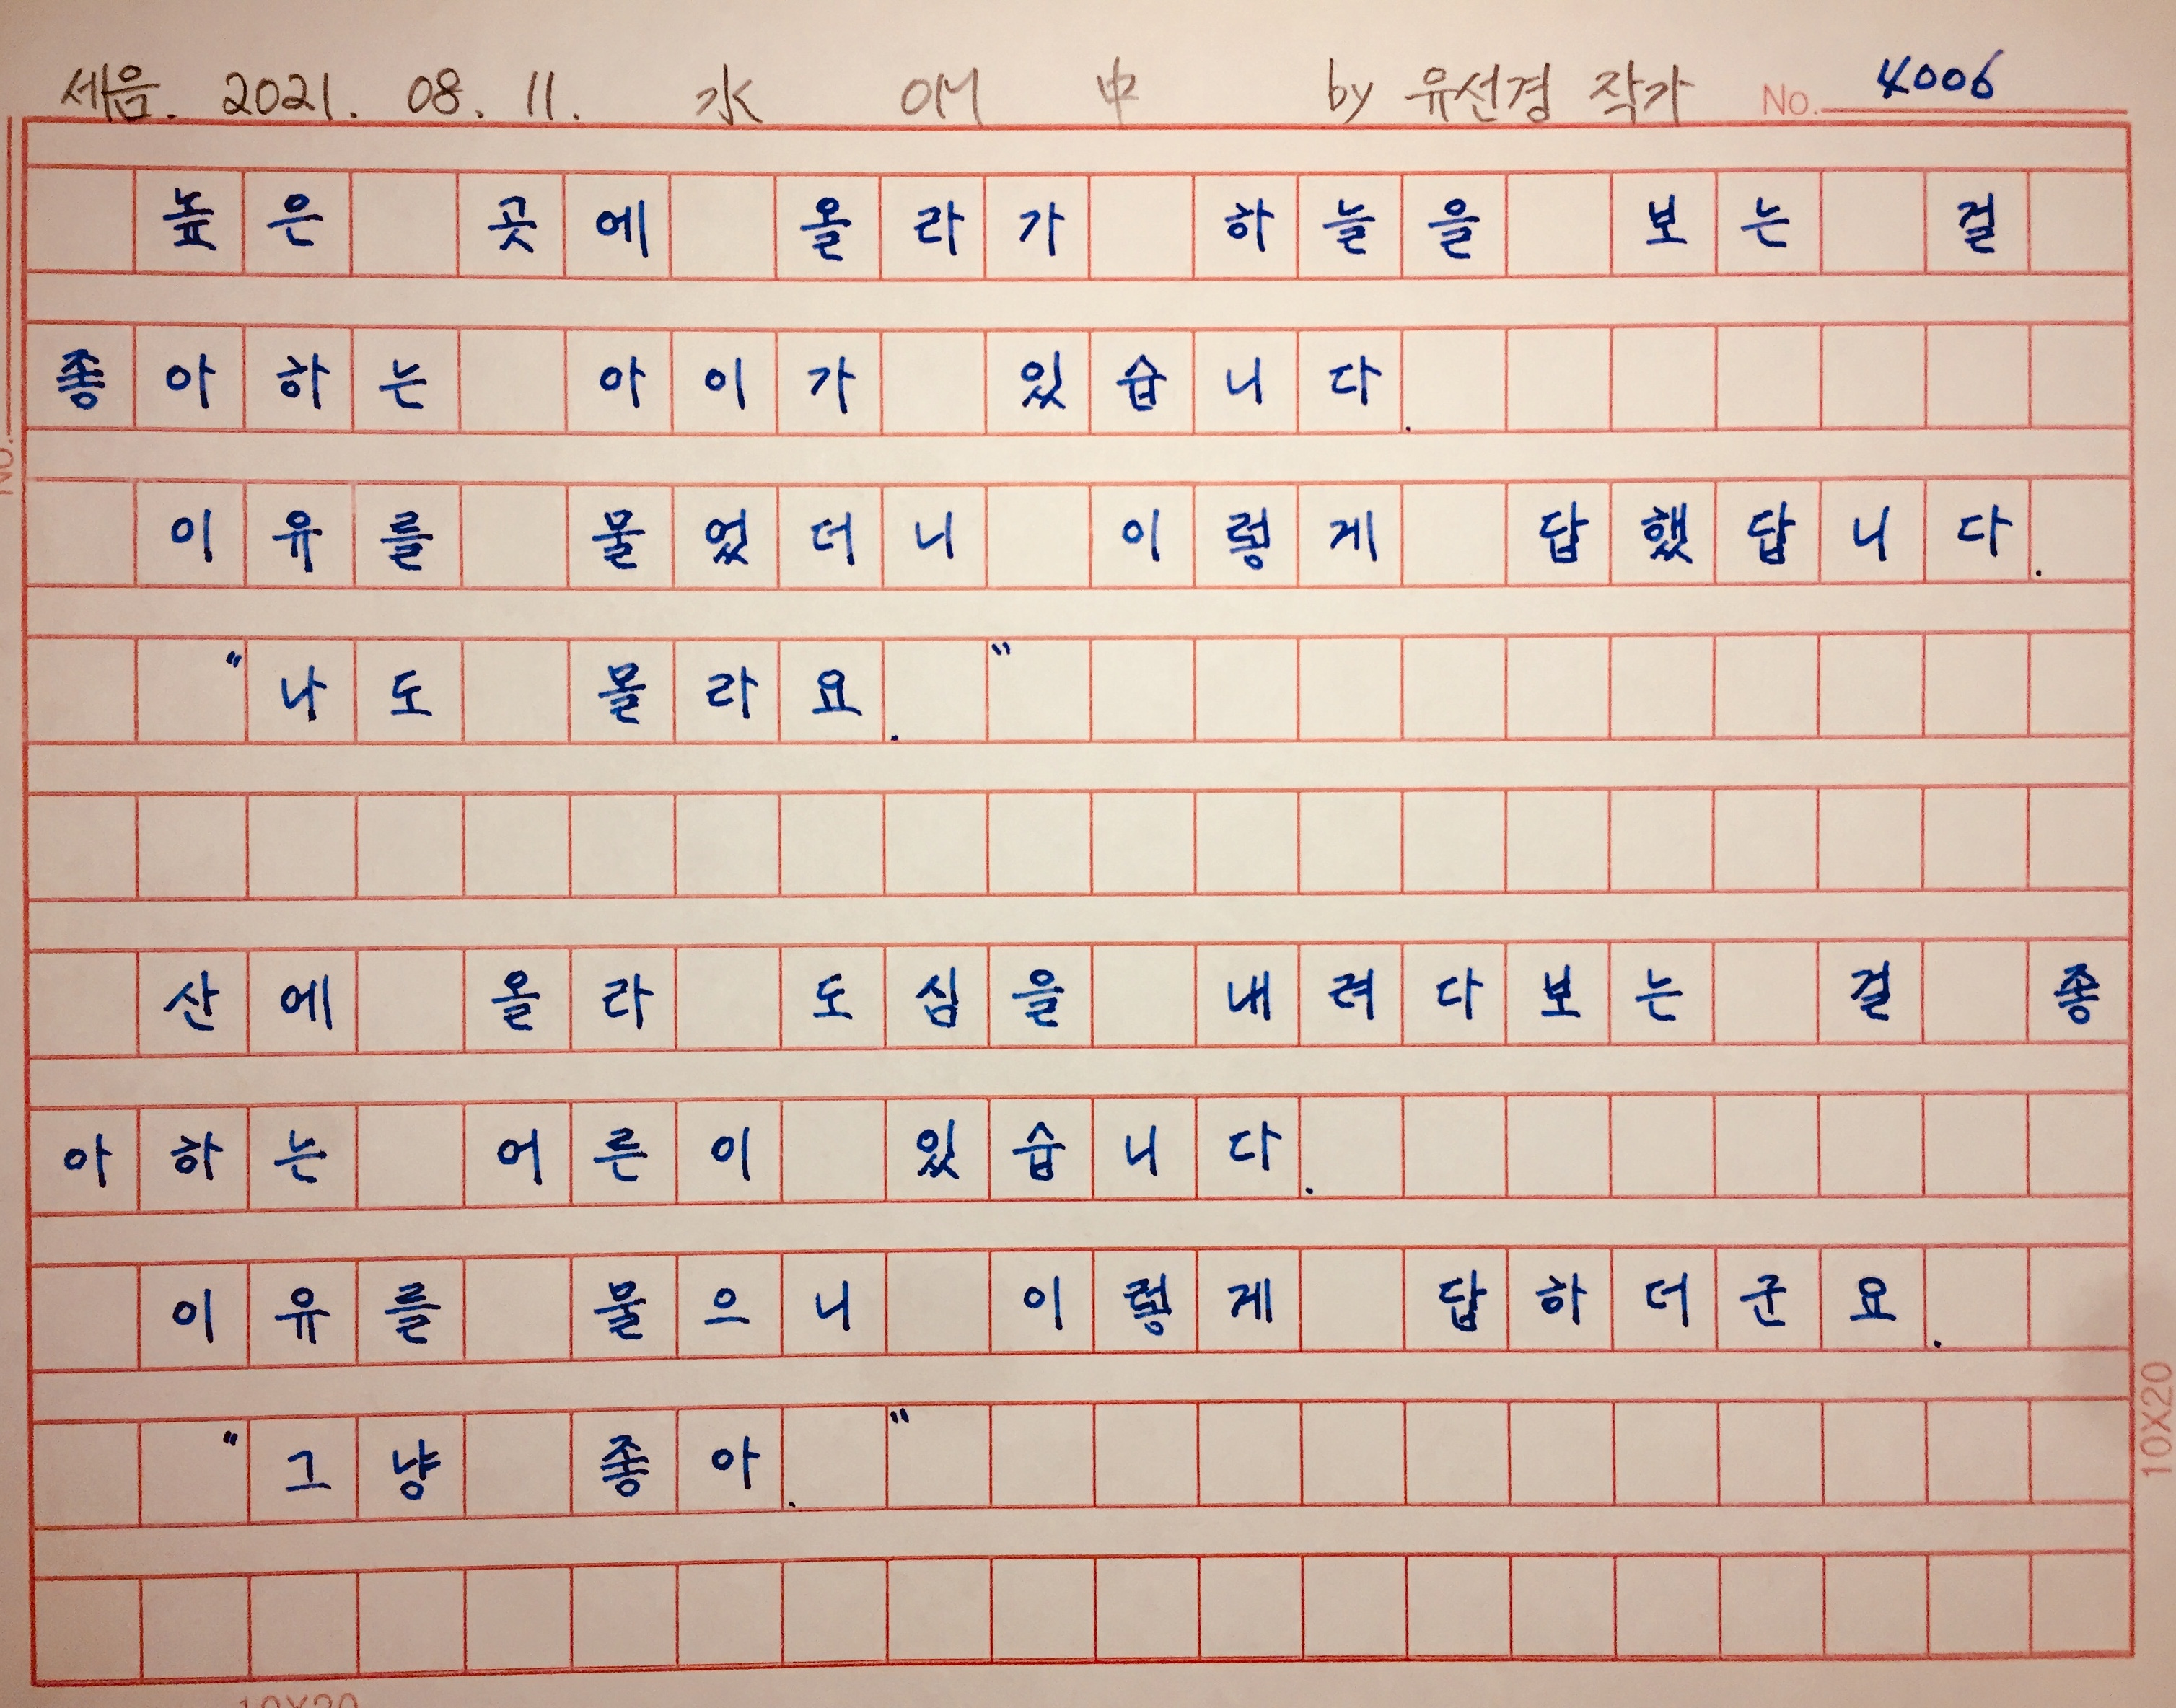 세음. 2021. 08. 11. 水 애 中 by 유선경 작가 No. 4006
높은 곳에 올라가 하늘을 보는 걸
좋아하는 아이가 있습니다.
이유를 물었더니 이렇게 답했답니다.
"나도 몰라요."
산에 올라 도심을 내려다보는 걸 좋
아하는 어른이 있습니다.
이유를 물으니 이렇게 답하더군요.
"그냥 좋아."
No.
10X20
10X20